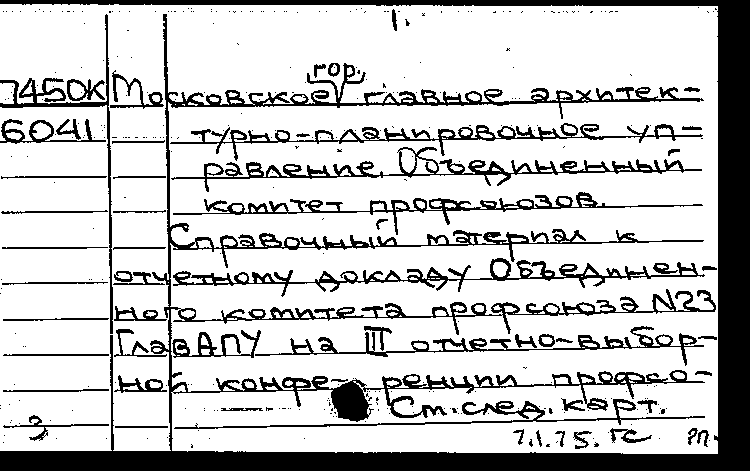 1.
гор.
7450К Московское главное архитек-
6041 турно-планировочное уп-
равление. Объединенный
комитет профсоюзов.
Справочный материал к
отчетному докладу Объединен-
ного комитета профсоюза N23
ГлавАПУ на III отчетно-выбор-
ной конфе- ренции профсо-
См. след. карт.
3 7.1.75. ГС РП-